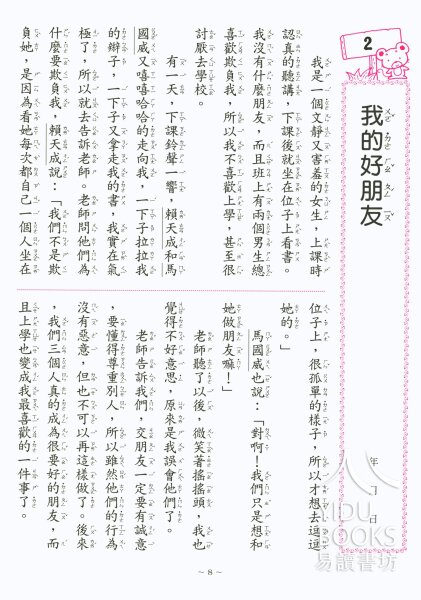 2
我的好朋友
年 月 日
我是一個文靜又害羞的女生，上課時
認真的聽講，下課後就坐在位子上看書。
我沒有什麼朋友，而且班上有兩個男生總
喜歡欺負我，所以我不喜歡上學，甚至很
討厭去學校。
有一天，下課鈴聲一響，賴天成和馬
國威又嘻嘻哈哈的走向我，一下子拉拉我
的辮子，一下子又拿走我的書，我實在氣
極了，所以就去告訴老師。老師問他們為
什麼要欺負我，賴天成說：「我們不是欺
負她，是因為看她每次都自己一個人坐在
位子上，很孤單的樣子，所以才想去逗逗
她的。」
馬國威也說：「對啊！我們只是想和
她做朋友嘛！」
老師聽了以後，微笑著搖搖頭，我也
覺得不好意思，原來是我誤會他們了。
老師告訴我們，交朋友一定要有誠意
，要懂得尊重別人，所以雖然他們的行為
沒有惡意，但也不可以再這樣做了。後來
，我們三個人真的成為很要好的朋友，而
且上學也變成我最喜歡的一件事了。
~ 8 ~
YIDU
BOOKS
易讀書坊